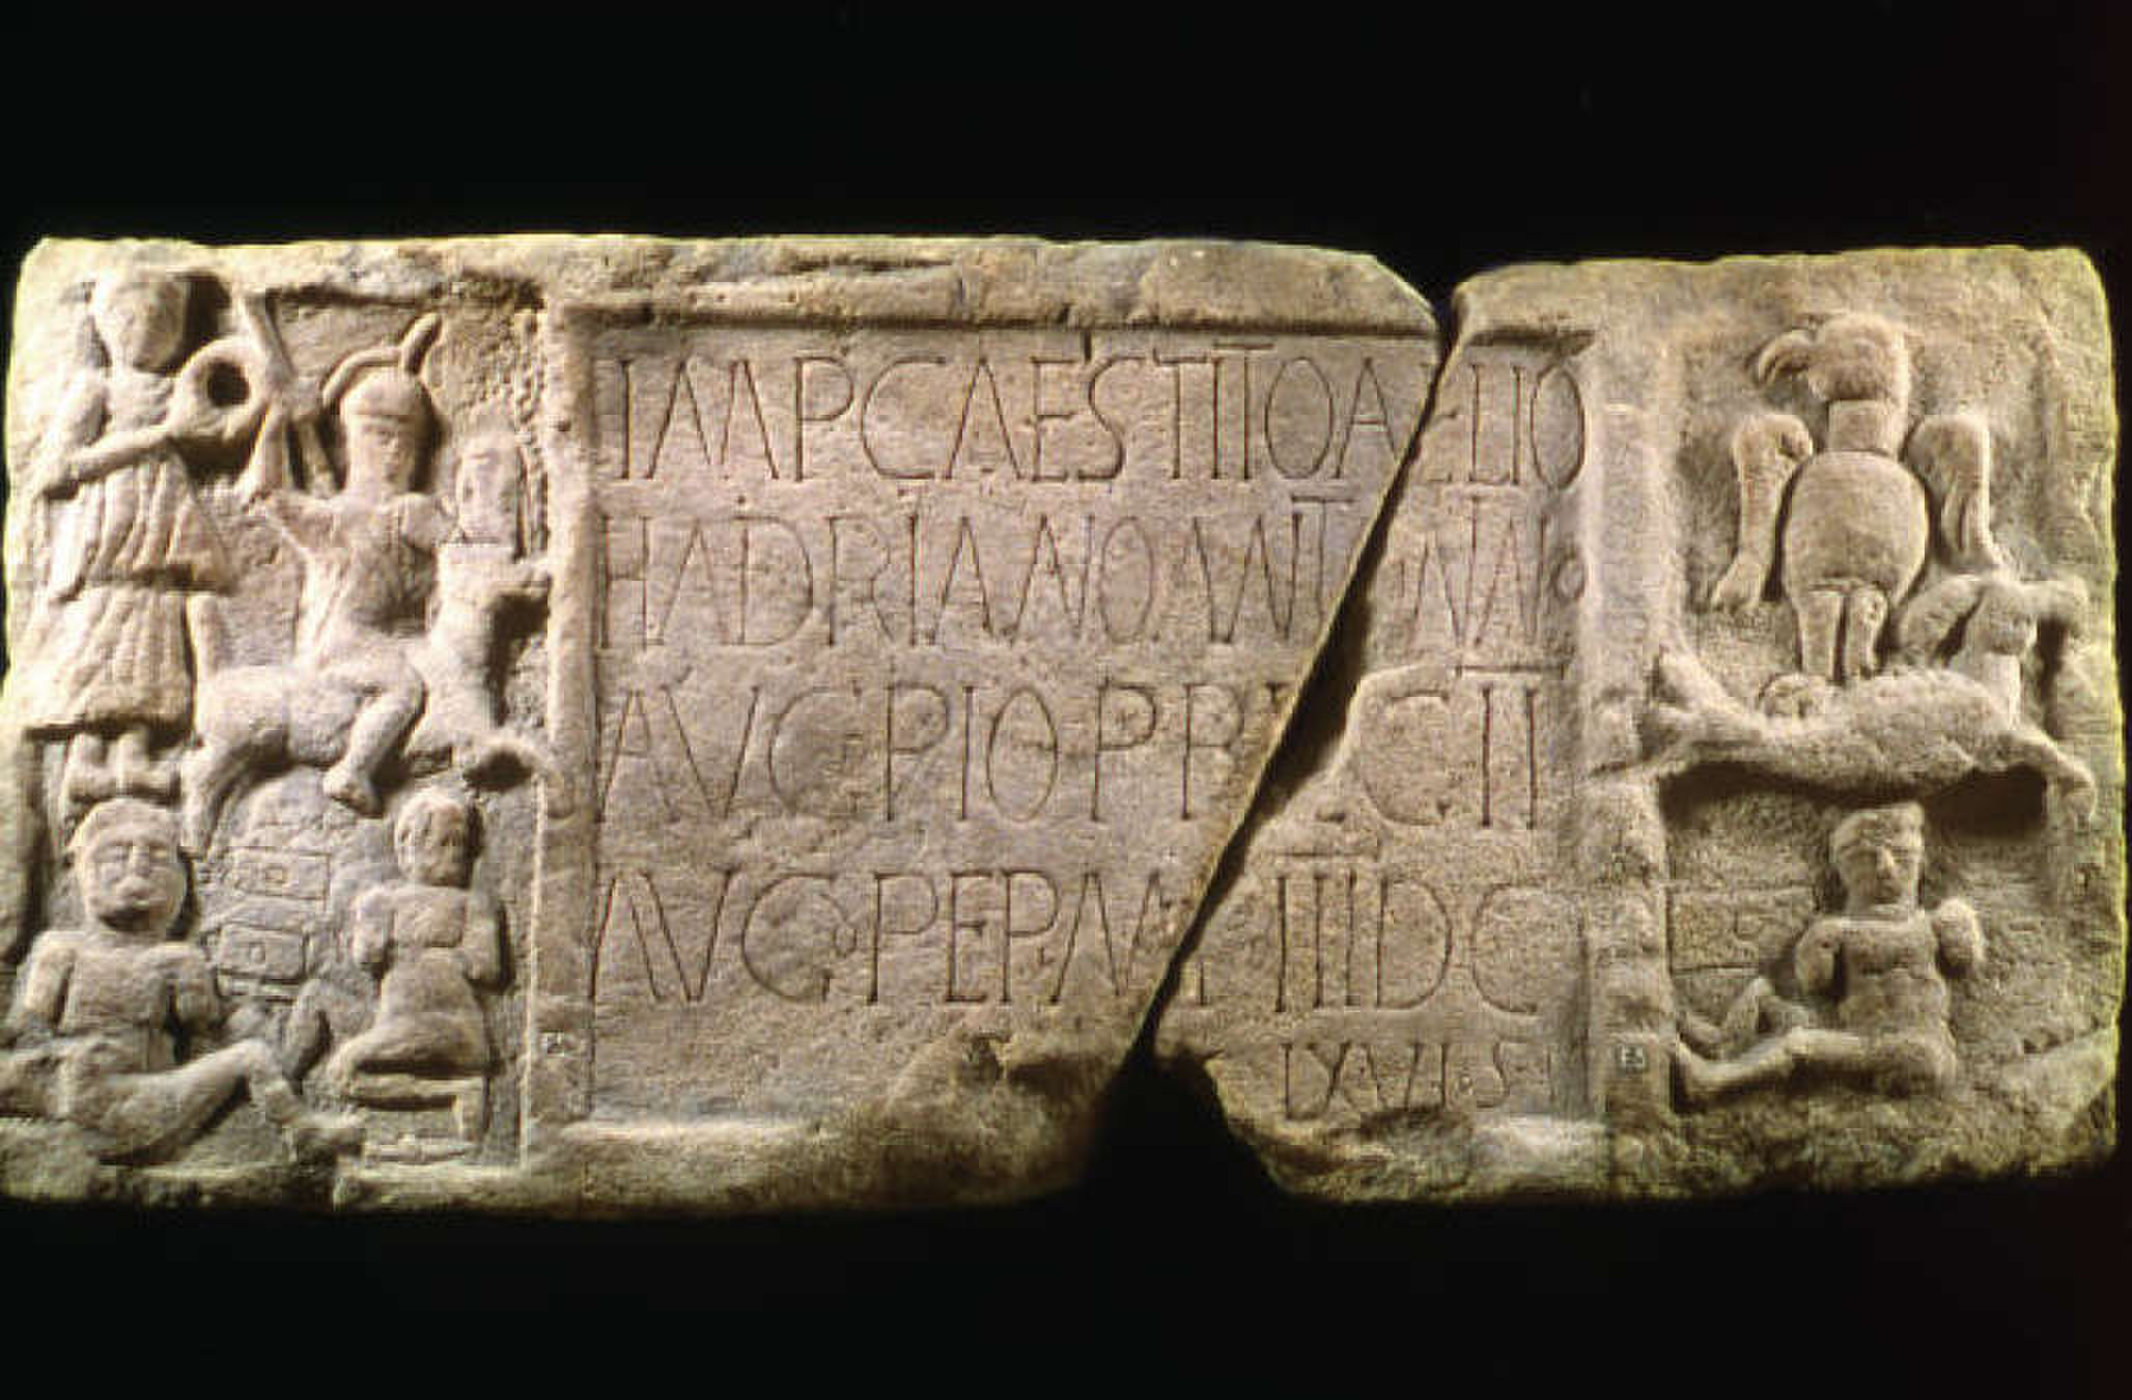 IMP CAES TITO AELIO
HADRIANO ANTONINO
AVG PIO P P LEG II
AVG PER M P III DC
LXVI S